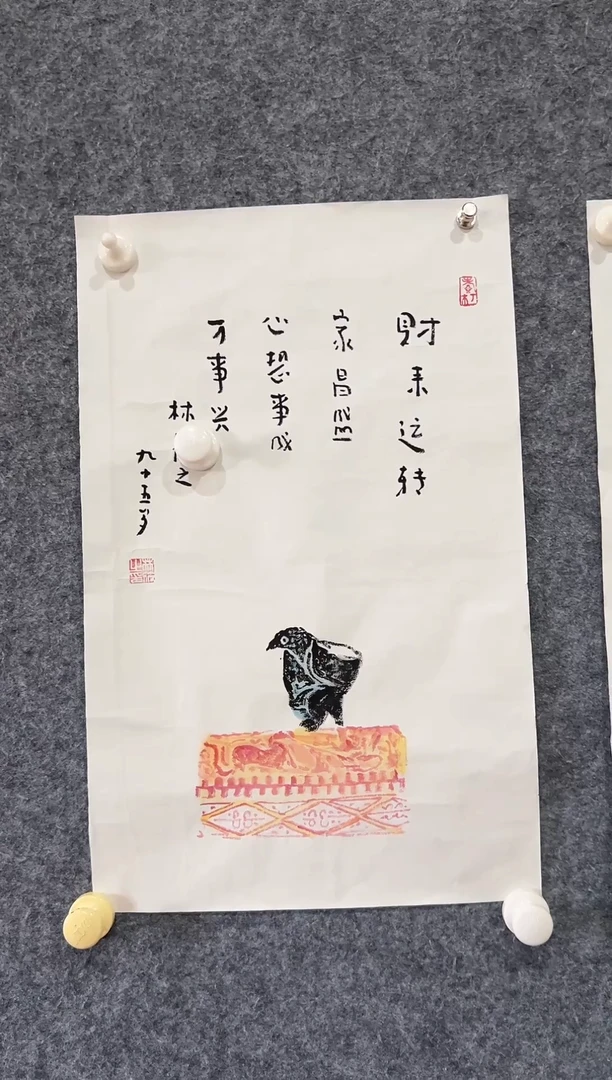 財来运转
家昌盛
心想事成
万事兴
林 之
九十五岁